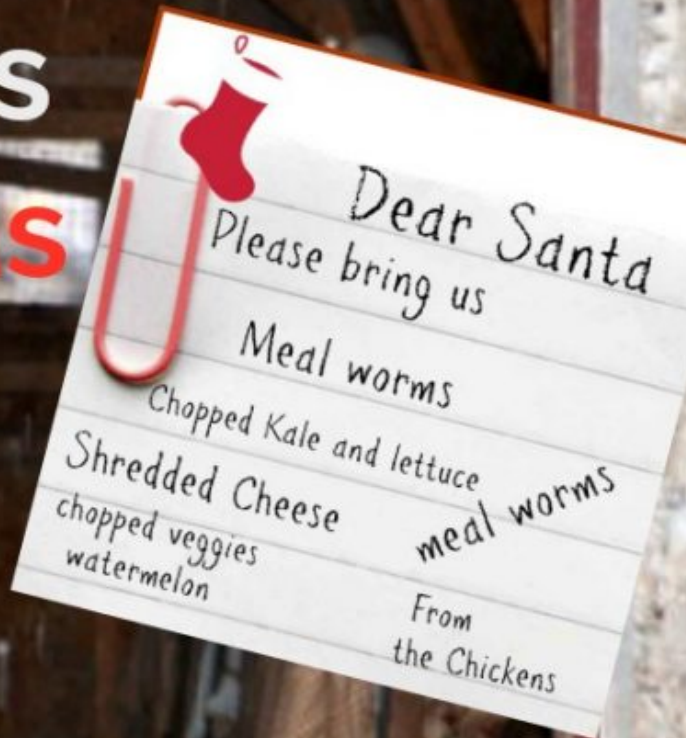 S
S
Dear Santa
Please bring us
Meal worms
Chopped Kale and lettuce
Shredded Cheese
meal worms
chopped veggies
watermelon
From
the Chickens